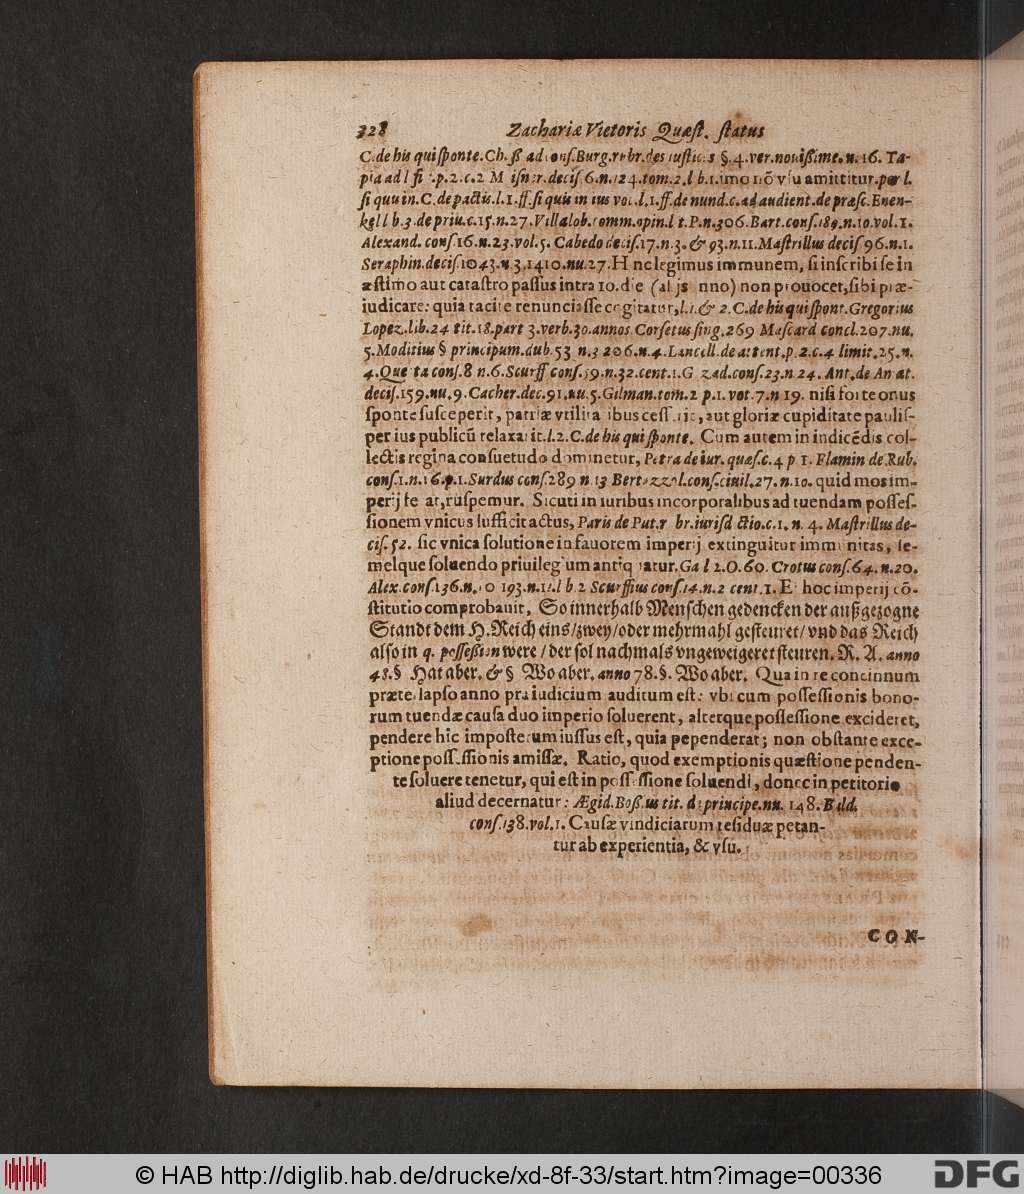 328 Zachariæ Vietoris Quæſt. ſtatus
C. de his qui ſponte. Ch. ſſ ad conſ. Burg. rubr. des iuſtices §. 4. ver. nouißime. n. 16. Ta-
pia ad l fi p. 2. c. 2 deciſ. 6. n. 124. tom. 2. l b. 1. imo nō vſu amittitur. per l.
ſi quis in. C. de pactis. l. 1. ff. ſi quis in ius voc. l. 1. ff. de nund. c. ad audient. de præſc. Enen-
kel l b. 3. de priu. c. 15. n. 27. Villalob. comm. opin. l t. P. n. 306. Bart. conſ. 189. n. 10. vol. 1.
Alexand. conſ 16. n. 23. vol. 5. Cabedo deciſ. 17. n. 3. & 93. n. 11. Maſtrillus deciſ 96. n. 1.
Seraphin. deciſ. 1043. n. 3. 1410. nu. 27. H nc legimus immunem, ſi inſcribi ſe in
æſtimo aut cataſtro paſſus intra 10. die (al js nno) non prouocet, ſibi præ-
iudicare: quia tacite renunciaſſe cogitatur, l. 1. & 2. C. de his qui ſpont. Gregorius
Lopez. lib. 24 tit. 18. part 3. verb. 30. annos. Corſetus ſing. 269 Maſcard concl. 207. nu.
5. Moditius § principum. dub. 53 n. 3 206. n. 4. Lancell. de attent. p. 2. c. 4 limit. 25. n.
4. Que ta conſ. 8 n. 6. Scurff conſ. 59. n. 32. cent. 1. G zad. conſ. 23. n. 24. Ant. de Amat.
deciſ. 159. nu. 9. Cacher. dec. 91. nu. 5. Gilman. tom. 2 p. 1. vot. 7. n 19. niſi forte onus
ſponte ſuſceperit, patriæ vtilitatibus ceſſurū, aut gloriæ cupiditate pauliſ-
per ius publicū relaxarit. l. 2. C. de his qui ſponte. Cum autem in indicēdis col-
lectis regina conſuetudo dominetur, Petra de iur. quæſ. c. 4 p 1. Flamin de Rub.
conſ. 1. n. 16. p. 1. Surdus conſ. 289 n 13 Bertazzol. conſ. ciuil. 27. n. 10. quid mos im-
perij ferat, ruſpemur. Sicuti in iuribus incorporalibus ad tuendam poſſeſ-
ſionem vnicus ſufficit actus, Paris de Put. r br. iuriſd ctio. c. 1. n. 4. Maſtrillus de-
ciſ. 52. ſic vnica ſolutione in fauorem imperij extinguitur immunitas, ſe-
melque ſoluendo priuilegium antiquatur. Ga l 2. O. 60. Crotus conſ. 64. n. 20.
Alex. conſ. 136. n. 10 193. n. 11. l b. 2 Scurffius conſ. 14. n. 2 cent. 1. Et hoc imperij cō-
ſtitutio comprobauit, So innerhalb Menſchen gedencken der außgezogne
Standt dem H. Reich eins/ zwey/ oder mehrmahl geſteuret/ vnd das Reich
alſo in q. poſſeßion were / der ſol nachmals vngeweigeret ſteuren. R. A. anno
48. § Hat aber. & § Wo aber. anno 78. §. Wo aber. Qua in re concinnum
præterlapſo anno præiudicium auditum eſt: vbi cum poſſeſſionis bono-
rum tuendæ cauſa duo imperio ſoluerent, alterque poſſeſſione excideret,
pendere hic impoſterum iuſſus eſt, quia pependerat; non obſtante exce-
ptione poſſeſſionis amiſſæ. Ratio, quod exemptionis quæſtione penden-
te ſoluere tenetur, qui eſt in poſſeſſione ſoluendi, donec in petitorio
aliud decernatur: Ægid. Boß. us tit. de principe. nu. 148. Bald.
conſ. 138. vol. 1. Cauſæ vindiciarum reſiduæ petan-
tur ab experientia, & vſu.
CON-
© HAB http://diglib.hab.de/drucke/xd-8f-33/start.htm?image=00336
DFG